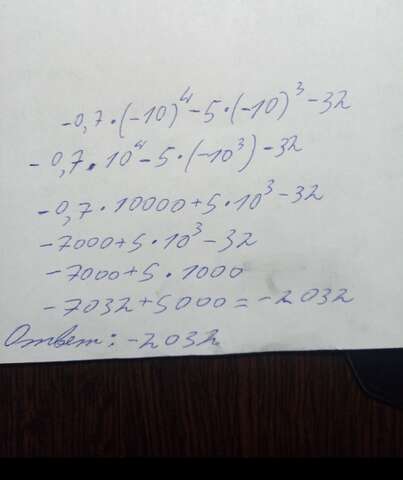 -0,7·(-10)⁴-5·(-10)³-32
-0,7·10⁴-5·(-10³)-32
-0,7·10000+5·10³-32
-7000+5·10³-32
-7000+5·1000
-7032+5000=-2032
Ответ: -2032